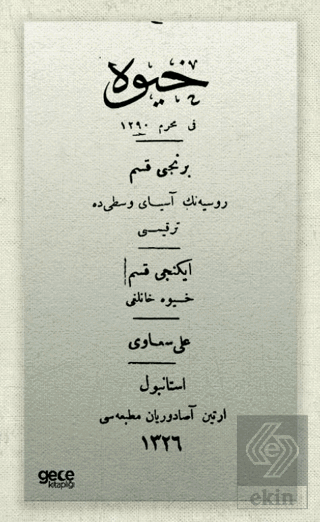 خيوه
فی محرم ١٢٩٠
برنجی قسم
روسيه‌نك آسيای وسطی‌ده
ترقيسی
ايكنجی قسم
خيوه خانلغی
علی سعاوی
استانبول
ارتين آصادوريان مطبعه‌سی
١٣٢٦
gece
kitaplığı
ekin